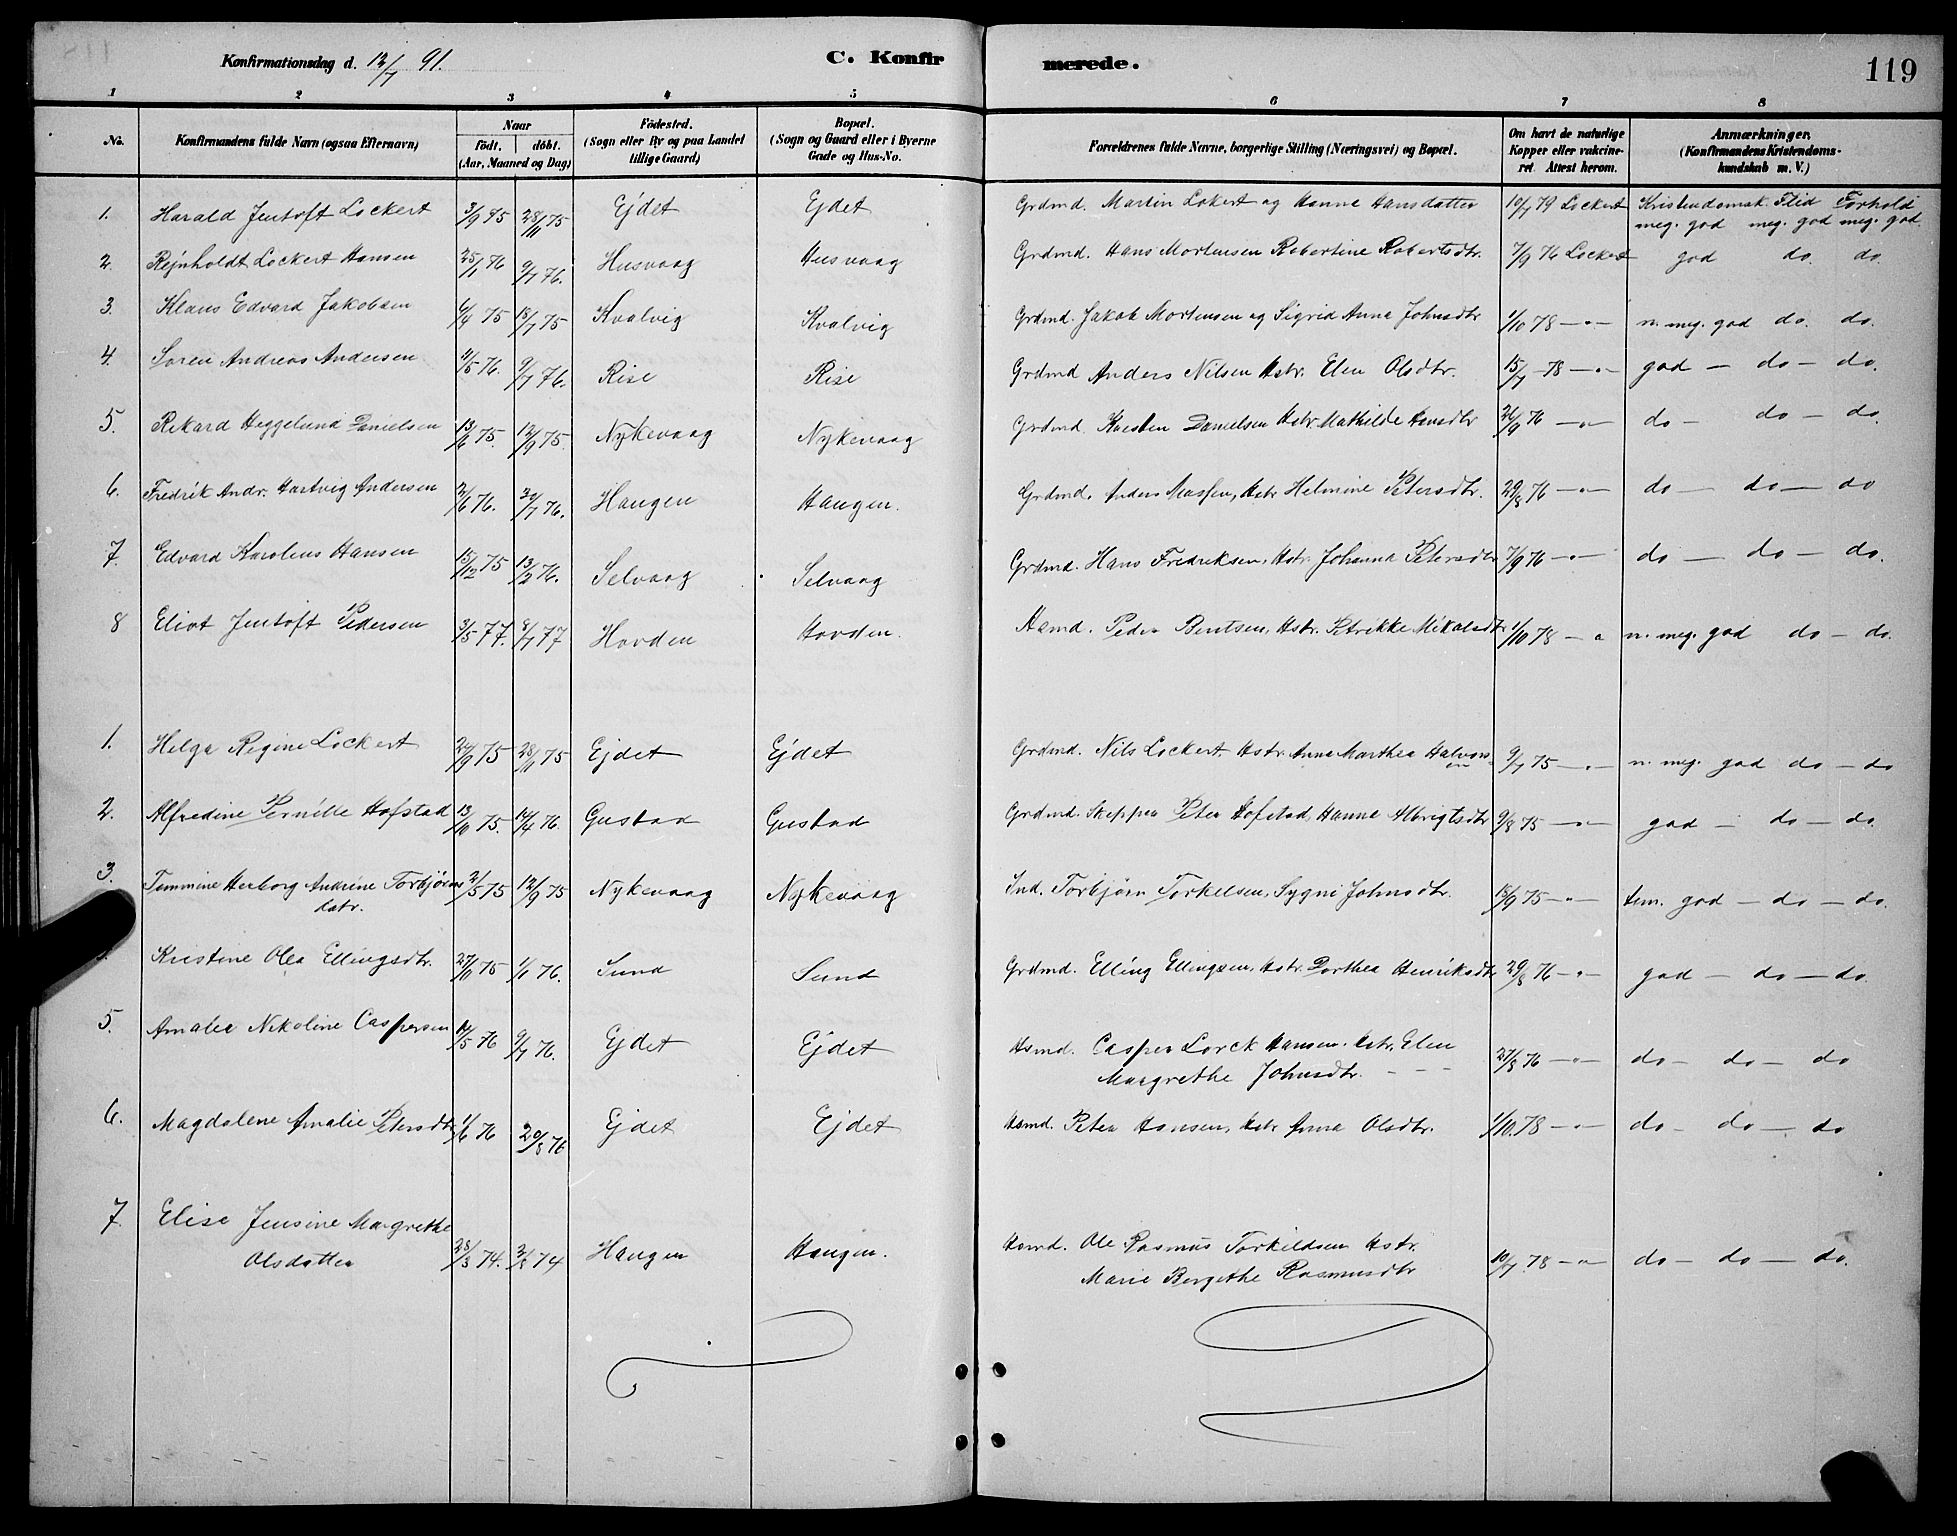 Konfirmationsdag d. 12/7 91.
C. Konfirmerede.
119
1 2 3 4 5 6 7 8
No.
Konfirmandens fulde Navn (ogsaa Efternavn)
Naar
födt. döbt.
(Aar, Maaned og Dag)
Födested.
(Sogn eller By og paa Landet
tillige Gaard)
Bopæl.
(Sogn og Gaard eller i Byerne
Gade og Hus-No.
Forældrenes fulde Navne, borgerlige Stilling (Næringsvei) og Bopæl.
Om havt de naturlige
Kopper eller vakcine-
ret. Attest herom.
Anmærkninger.
(Konfirmandens Kristendoms-
kundskab m. V.)
1. Harald Jentoft Lockert 3/9 75 28/11 75 Ejdet Ejdet Grdmd. Martin Lokert og Hanna Hansdatter 10/7 79 Lockert Kristendomsk. Flid Forhold
meg. god meg. god meg. god.
2. Rejnholdt Lockert Hansen 25/1 76 9/7 76. Husvaag Husvaag Grdmd. Hans Mortensen Robertine Robertsdtr. 7/9 76 Lockert god do. do.
3. Klaus Edvard Jakobsen 6/4 75 18/7 75 Kvalvig Kvalvig Grdmd. Jakob Mortensen og Sigrid Anna Johnsdtr 1/10 78 — " — n. meg. god do. do.
4. Soren Andreas Andersen 11/5 76. 9/7 76. Rise Rise Grdmd Anders Nilsen Hstr. Elen Olsdtr. 15/7 78 — " — god — do — do.
5. Rikard Heggelund Danielsen 13/6 75. 12/9 75. Nykevaag Nykevaag Grdmd. Karsten Danielsen Hstr. Mathilde Hansdtr 26/9 76 — " — do — do — do.
6. Fredrik Andr. Hartvig Andersen 2/6 76. 30/7 76. Haugen Haugen. Grdmd. Anders Massen, Hstr Helmine Petersdtr. 29/8 76 — " — do — do — do
7. Edvard Karolius Hansen 15/12 75 13/2 76. Selvaag Selvaag Grdmd. Hans Fredriksen, Hstr. Johanna Petersdtr 7/9 76 — " — do — do — do.
8 Eliot Jentoft Pedersen 3/5 77. 8/7 77 Hovden Hovden. Hsmd. Peder Bentsen, Hstr. Petrikke Mikalsdtr 1/10 78 — " n. meg. god do — do.
1. Helga Regine Lockert 24/9 75 28/11 75 Ejdet Ejdet Grdmd. Nils Lockert. Hstr. Anna Marthea Halvors- 9/7 75 — " — n. meg. god do — do
2. Alfredine Pernille Hofstad 13/10 75. 14/4 76. Gustad Gustad Grdmd. Skipper Peter Hofstad, Hanna Albrigtsdtr 9/8 75 — " — god — do — do.
3. Tommine Herborg Andrine Torbjörns
datr. 21/5 75 12/9 75 Nykevaag Nykevaag Ind. Torbjörn Torkelsen, Sygni Johnsdtr. 15/9 75 — " — tem. god — do — do.
Kristine Olea Ellingsdtr. 27/11 75 1/1 76. Sund Sund Grdmd. Elling Ellingsen, Hstr. Dorthea Henriksdtr 29/8 76 — " — god — do — do.
5. Amalia Nikoline Caspersen 14/5 76 9/7 76. Ejdet Ejdet Hsmd. Casper Lorck Hansen. Hstr. Elen
Margrethe Johnsdtr. — — — 27/8 76 — " — do — do — do
6. Magdalene Amalie Petersdtr 1/6 76 20/8 76 Ejdet Ejdet Hsmd. Peter Hansen, Hstr Anna Olsdtr. 1/10. 78 — " — do — do — do
7. Elise Jensine Margrethe
Olsdatter 28/3 74. 2/8 74 Haugen Haugen. Hsmd. Ole Rasmus Torkildsen Hstr.
Marie Bergithe Rasmusdtr 10/7 78 — " — do — do — do.